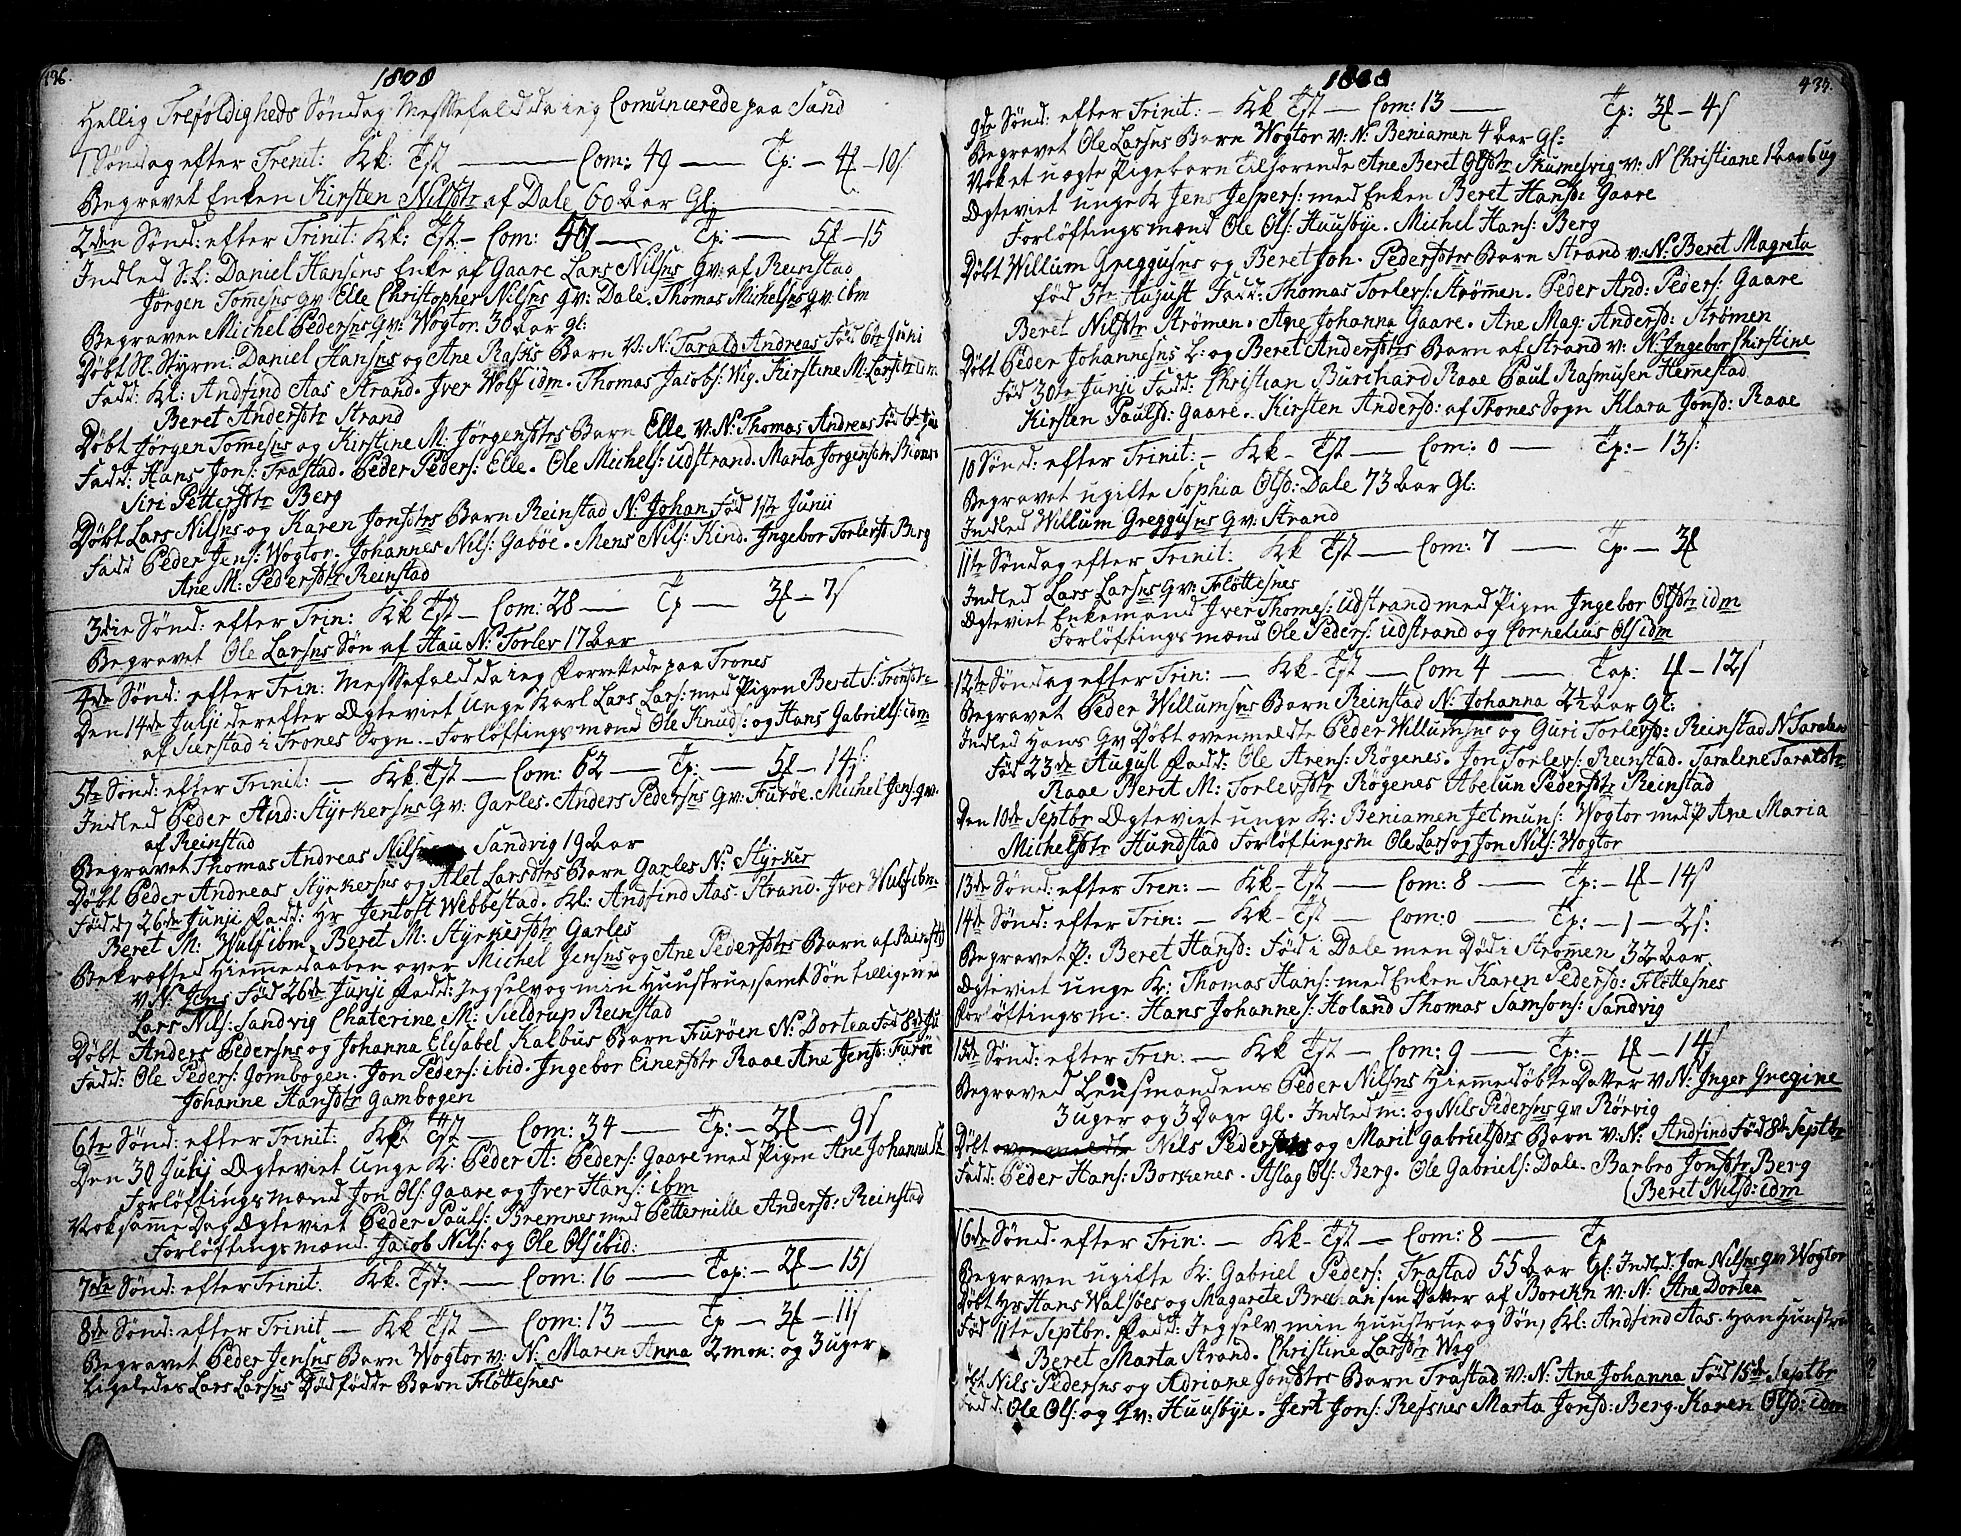 436.
1808
Hellig Trefoldigheds Søndag Messefald da ieg Comunicerede paa Sand
1 Søndag efter Trenit: Kk: Tst — Com: 49 — Tp: — 4 — 10 s.
Begravet Enken Kirsten Nilsdtr af Dale 60 Aar Gl:
2den Sønd: efter Trinit: Kk: Tst — Com: — Tp: — 5 — 15
Indled S: L: Daniel Hansens Enke af Gaare Lars Nilsns qv: af Reinstad
Jörgen Tomesns qv Elle Christopher Nilsns qv: Dale. Thomas Michelsns qv: ibm
Begraven Michel Pedersns qv: Wogtor 30 Aar gl:
Døbt Sl. Styrm. Daniel Hansns og Ane Rasks Barn V: N: Tarald Andreas Fød 6te Juni
Fadd: Kl: Andfind Aas Strand. Iver Wolf idm. Thomas Jacobs: Wig. Kirstine M: Larsdtr idm
Beret Andersdtr Strand
Døbt Jørgen Tomesns og Kirstine M: Jørgensdtrs Barn Elle V: N: Thomas Andreas Fød 6te
Fadd: Hans Jons: Trastad. Peder Peders: Elle. Ole Michels: udstrand. Marta Jørgensdtr
Siri Pettersdtr Berg
Døbt Lars Nilsns og Karen Jonsdtrs Barn Reinstad N: Johan Fød 1ste Junii
Fadd Peder Jens: Wogtor. Johannes Nils: Gabøe. Mens Nils: Kind. Ingebor Torlersd Berg
Ane M: Pedersdtr Reinstad
3die Sønd: efter Trin: Kk Tst — Com: 28 — Tp — 3 — 7 s
Begravet Ole Larsns Søn af Hau N: Torlev 17 Aar
4de Sønd: efter Trin: Messefald da ieg Forrettede paa Trones
Den 14de Julji derefter Ægteviet Unge Karl Lars Lars: med Pigen Beret S: Tronsdtr
af Sierstad i Trones Sogn. Forløftingsmænd Ole Knuds: og Hans Gabriels: idm
5te Sønd: efter Trinit: — Kk. Tst — Com: 62 — Tp: — 5 — 14 s:
Indled Peder And: Styrkersns qv: Garles. Anders Pedersns qv: Furøe. Michel Jens: qv.
af Reinstad
Begravet Thomas Andreas Nils Sandvig 19 Aar
Døbt Peder Andreas Styrkersns og Alet Larsdtrs Barn Garles N: Styrker
Fød d 26de Junji Fadd: Hr Jentoft Webbestad. Kl: Andfind Aas. Strand. Iver Wulf ibm.
Beret M: Wulf ibm. Beret M: Styrkersdtr Garles
Bekræftsed Hiemmedaaben over Michel Jensns og Ane Pedersdtrs Barn af Reinstd
V: N: Jens Fød 26de Junji Fadd: Jeg selv og min Huustrue, samt Søn tilligemed
Lars Nils: Sandvig Chaterine M: Sieldrup Reinstad
Døbt Anders Pedersns og Johanna Elisabel Kalbus Barn Furøen N: Dortea Fød 8de
Fadd: Ole Peders: Gombogen. Jon Peders: ibid. Ingebor Einersdtr Raae Ane Jensd: Furøe
Johanne Hansdtr Gambogen
6te Sønd: efter Trinit: Kk: Tst — Com: 34 — Tp: — 2 — 9 s
Den 30 Julij Ægteviet Unge K: Peder A: Peders: Gaare med Pigen Ane Johanna
Forløftingsmænd Jon Ols: Gaare og Iver Hans: ibm
Vok same Dag Ægteviet Peder Pauls: Bremnes med Petternille Andersd: Reinstad
Forløftingsmænd. Jacob Nils: og Ole Ols ibid:
7nde Sønd: efter Trinit. Kk. Tst: — Com: 16 — Tap: — 2 — 15 s
8de Sønd: efter Trinit — Kk Tst — Com: 13 — Tp — 3 — 11 s
Begravet Peder Jensns Barn Wogtor v: N: Maren Anna 2 mon: og 3 uger
Ligeledes Lars Larsns Dødfødde Barn Fløttesnes
1808
9de Sønd: efter Trinit: — Kk Tst — Com: 13 — Tp: 3 — 4 s
Begravet Ole Larsns Barn Wogtor V: N: Beniamen 4 Aar Gl:
Vok et uægte Pigebarn Tilhørende Ane Beret Olsdtr Skumesvig v: N Christiane 1 Aar 6 ug
Ægteviet unge K Jens Jespers: med Enken Beret Hansd: Gaare
Forløftingsmænd Ole Ols: Huusbye. Michel Hans: Berg
Døbt Willum Greggusns og Beret Joh. Pedersdtrs Barn Strand v: N: Beret Magreta
Fød 5te August Fadd: Thomas Torlevs: Strømmen. Peder And: Peders: Gaare
Beret Nilsdtr Strømen. Ane Johanna Gaare. Ane Mag: Andersd: Strømen
Døbt Peder Johannesns L: og Beret Andersdtrs Barn af Strand v: N: Ingebor Chirstine
Fød 30te Junji Fadd: Christian Burchard Raae Paul Rasmusen Hemestad
Kirsten Paulsd: Gaare. Kirsten Andersd: af Trones Sogn Klara Jonsd: Raae
10 Sønd: efter Trinit: — Kk — Tst — Com: 0 — Tp: — 13 s:
Begravet ugifte Sophia Olsd: Dale 73 Aar Gl:
Indled Willum Greggusns qv: Strand
11te Søndag efter Trinit: Kk Tst — Com: 7 — Tp: — 3
Indled Lars Larsns qv: Fløttesnes
Ægteviet Enkemand Iver Thomes: Udstrand med Pigen Ingebor Olsdtr idm
Forløftingsmænd Ole Peders: udstrand og Cornelius Ols idm
12te Søndag efter Trin: — Kk — Tst — Com 4 — Tap: 4 — 12 s
Begravet Peder Willumsns Barn Reinstad N: Johanna 2½ Aar Gl:
Indled Hans Qv Døbt ovenmeldte Peder Willumsns og Guri Torlevsd: Reinstad N Taralen
Fød 23de August Fadd: Ole Arens: Røgenes. Jon Torlevs: Reinstad. Taralene Taralsdtr
Raae Berit M: Torlevsdtr Røgenes Abelun Pedersdtr Reinstad
Den 10de Septbr Ægteviet unge K: Beniamen Jetmuns: Wogtor med P Ane Maria
Michelsdtr Hundstad Forløftingsm Ole Lars og Jon Nils: Wogtor
13de Sønd: efter Tren: — Kk — Tst — Com: 8 — Tp: — 4 — 14 s
14de Sønd: efter Trin: — Kk — Tst — Com: 0 — Tp: — 1 — 2 s:
Begravet P: Beret Hansd: Fød i Dale men Død i Strømmen 32 Aar
Ægteviet unge K: Thomas Hans: med Enken Karen Pedersd: Fløttesnes
Forløftingsm: Hans Johannes: Holand Thomas Samsons: Sandvig
15de Sønd: efter Trin: — Kk Tst — Com: 9 — Tp: — 4 — 14 s
Begraved Lensmandens Peder Nilsns Hiemmedøbte Datter V N: Inger Gregine
3 uger og 3 Dage Gl. Indled m: og Nils Pedersns qv Rørvig
Døbt Nils Peders og Marit Gabrielsdrs Barn V: N: Andfind Fød 8de Septbr
Fadd: Peder Hans: Borkenes. Aslag Ols: Berg. Ole Gabriels: Dale. Barbro Jonsdtr Berg
Beret Nilsd: idm
16de Sønd: efter Trin: — Kk — Tst — Com: 8 — Tp
Begraven ugifte K: Gabriel Peders: Trastad 55 Aar Gl: Indled: Jon Nilsns qv Wogtor
Døbt Hr Hans Walsøes og Magarete Datter af Borckn V: N: Ane Dortea
Fød 11te Septbr. Fadd: Jeg selv min Huustrue og Søn, Kl: Andfind Aas. Han Huustru
Beret Marta Strand. Christine Larsdtr Wog
Døbt Nils Pedersns og Adriane Jonsdtrs Barn Trastad V: N: Ane Johanna Fød 15de Septbr
Fadd: Ole Ols: og qv: Huusbye. Jert Jons: Refsnes Marta Jonsd: Berg. Karen Olsd: idm